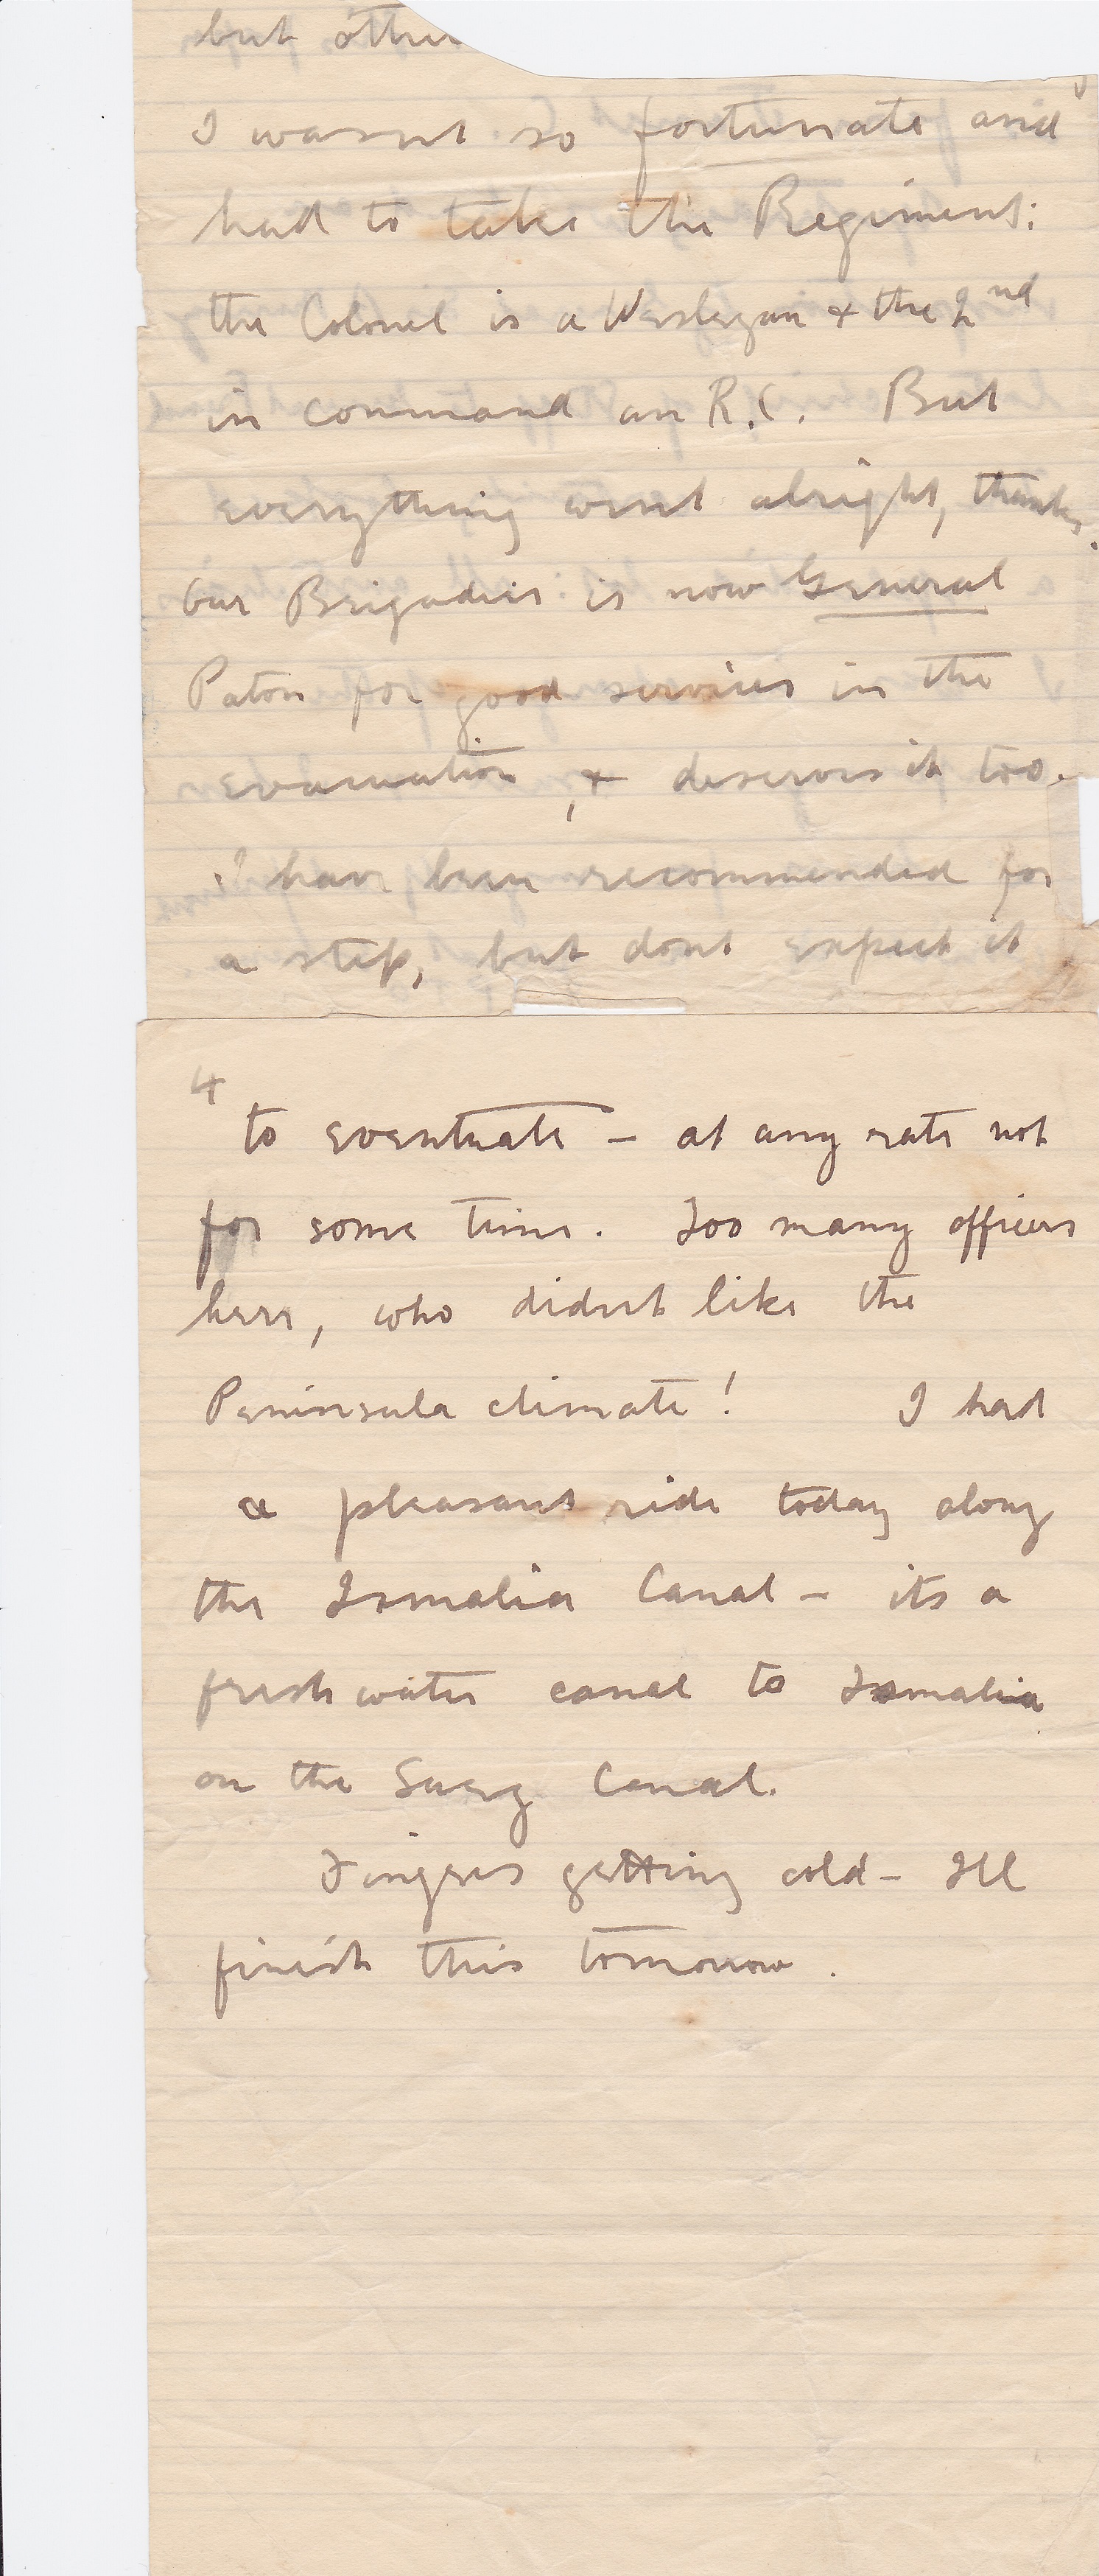 but other
I wasnt so fortunate and
had to take the Regiment:
the Colonel is a Wesleyan & the 2nd
in command an R.C. But
everything went alright, thanks.
Our Brigadier is now General
Paton for good services in the
evacuation, & deserves it too.
I have been recommended for
a step, but dont expect it
4
to eventuate - at any rate not
for some time. Too many officers
here, who didnt like the
Peninsula climate! I had
a pleasant ride today along
the Ismalia Canal - its a
fresh water canal to Ismalia
on the Suez Canal.
Fingers getting cold - Ill
finish this tomorrow.